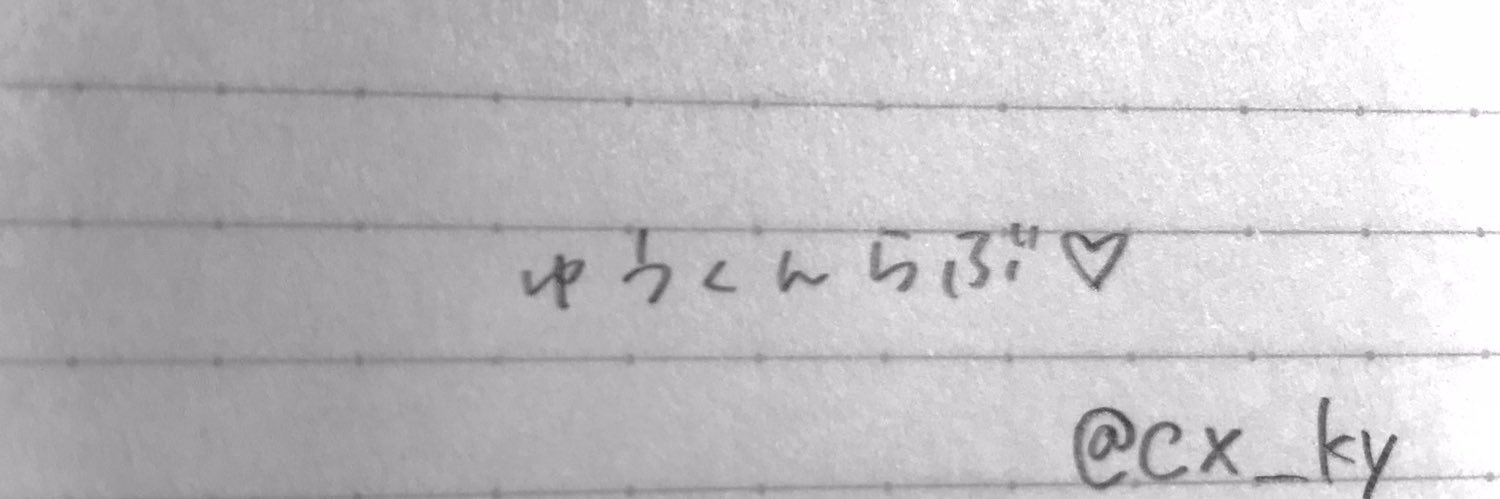 ゆうくんらぶ♡
@cx_ky